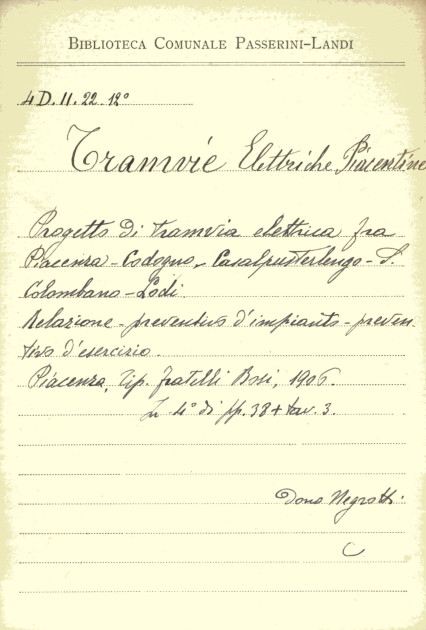 BIBLIOTECA COMUNALE PASSERINI-LANDI
4D.11.22.12°
Tramvie Elettriche Piacentine
Progetto di tramvia elettrica fra
Piacenza-Codogno-Casalpusterlengo-S.
Colombano-Lodi
Relazione-preventivo d'impianto-preven
tivo d'esercizio.
Piacenza, Tip. fratelli Bosi, 1906.
In 4° di pp. 38 + tav. 3.
Dono Negrotti.
C